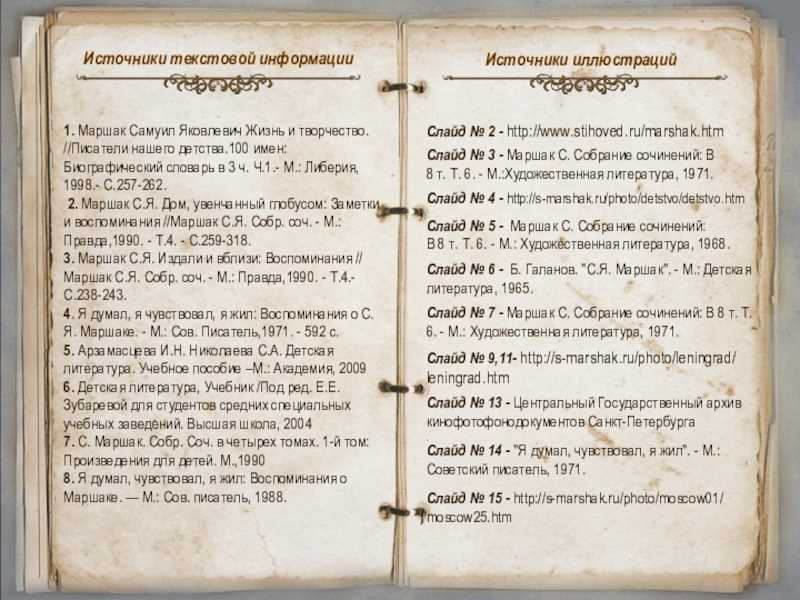 Источники текстовой информации
1. Маршак Самуил Яковлевич Жизнь и творчество.
//Писатели нашего детства.100 имен:
Биографический словарь в 3 ч. Ч.1.- М.: Либерия,
1998.- С.257-262.
2. Маршак С.Я. Дом, увенчанный глобусом: Заметки
и воспоминания //Маршак С.Я. Собр. соч. - М.:
Правда,1990. - Т.4. - С.259-318.
3. Маршак С.Я. Издали и вблизи: Воспоминания //
Маршак С.Я. Собр. соч. - М.: Правда,1990. - Т.4.-
С.238-243.
4. Я думал, я чувствовал, я жил: Воспоминания о С.
Я. Маршаке. - М.: Сов. Писатель,1971. - 592 с.
5. Арзамасцева И.Н. Николаева С.А. Детская
литература. Учебное пособие –М.: Академия, 2009
6. Детская литература, Учебник /Под ред. Е.Е.
Зубаревой для студентов средних специальных
учебных заведений. Высшая школа, 2004
7. С. Маршак. Собр. Соч. в четырех томах. 1-й том:
Произведения для детей. М.,1990
8. Я думал, я чувствовал, я жил: Воспоминания о
Маршаке. — М.: Сов. писатель, 1988.
Источники иллюстраций
Слайд № 2 - http://www.stihoved.ru/marshak.htm
Слайд № 3 - Маршак С. Собрание сочинений: В
8 т. Т. 6. - М.:Художественная литература, 1971.
Слайд № 4 - http://s-marshak.ru/photo/detstvo/detstvo.htm
Слайд № 5 - Маршак С. Собрание сочинений:
В 8 т. Т. 6. - М.: Художественная литература, 1968.
Слайд № 6 - Б. Галанов. "С.Я. Маршак". - М.: Детская
литература, 1965.
Слайд № 7 - Маршак С. Собрание сочинений: В 8 т. Т.
6. - М.: Художественная литература, 1971.
Слайд № 9,11- http://s-marshak.ru/photo/leningrad/
leningrad.htm
Слайд № 13 - Центральный Государственный архив
кинофотофонодокументов Санкт-Петербурга
Слайд № 14 - "Я думал, чувствовал, я жил". - М.:
Советский писатель, 1971.
Слайд № 15 - http://s-marshak.ru/photo/moscow01/
moscow25.htm